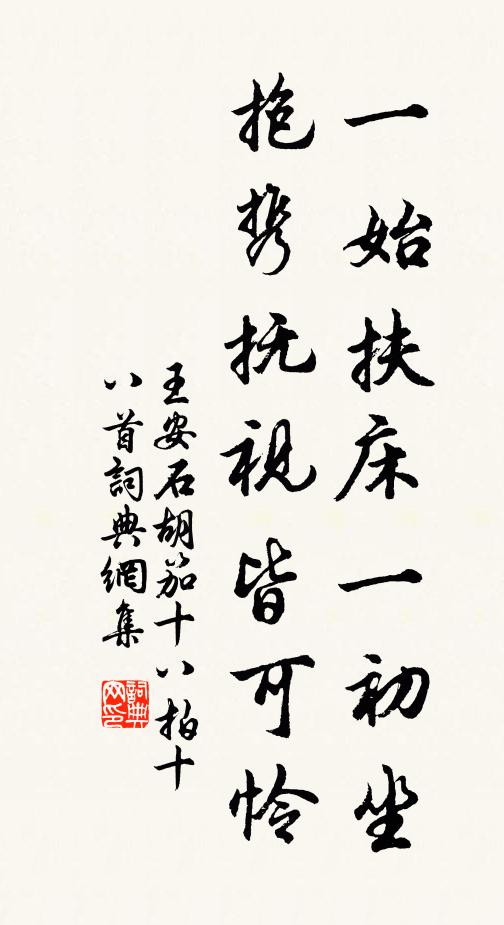 一始扶床一初坐
抱携抚視皆可怜
王安石胡笳十八拍十
八首詞典網集
詞典
网印